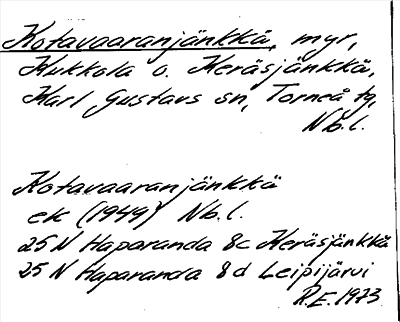 Kotavaaranjänkkä, myr,
Kukkola o. Keräsjänkkä,
Karl Gustavs sn, Torneå tg,
Nb.l.
Kotavaaranjänkkä
ek (1949) Nb.l.
25 N Haparanda 8c Keräsjänkkä
25 N Haparanda 8d Leipijärvi
R.E. 1973